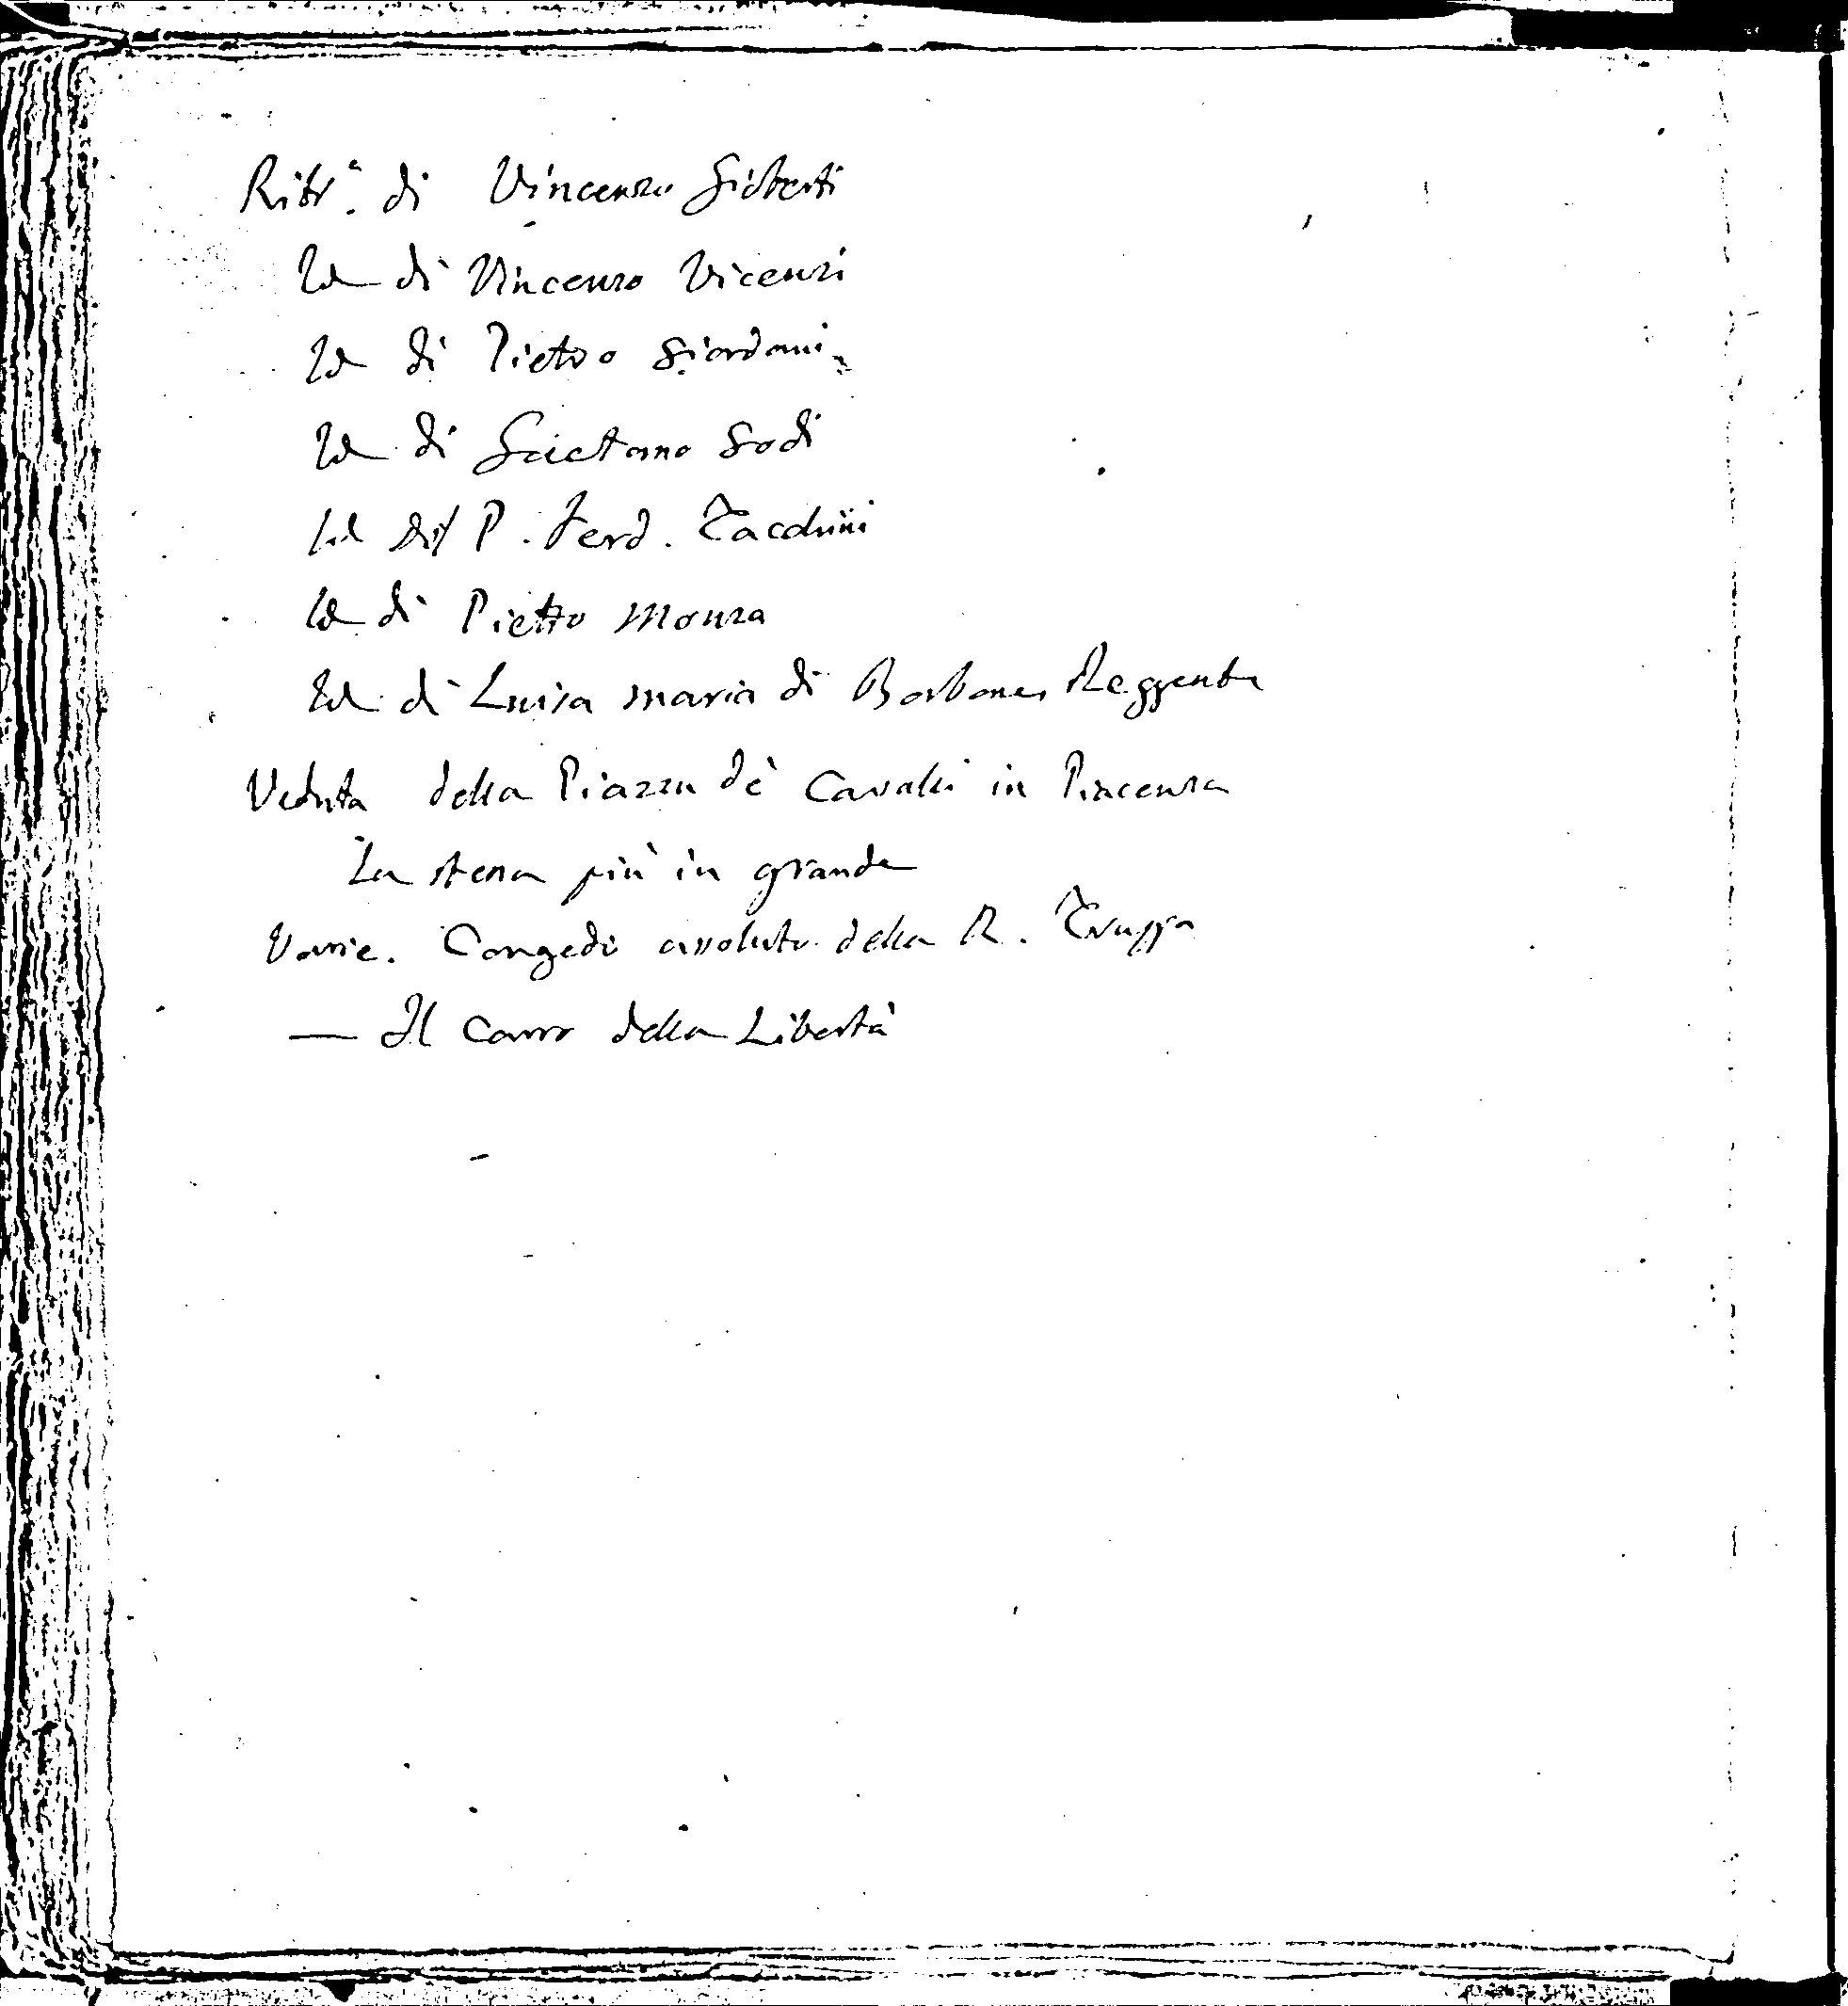 Ritr.º di Vincenzo Gioberti
Id di Vincenzo Vicenzi
Id di Pietro Giordani
Id di Gaetano Godi
Id del P. Ferd. Tacchini
Id di Pietro Monza
Id di Luisa Maria di Borbone, Reggente
Veduta della Piazza de' Cavalli in Piacenza
La stessa più in grande
Varie. Congedo assoluto della R. Truppa
— Il Carro della Libertà